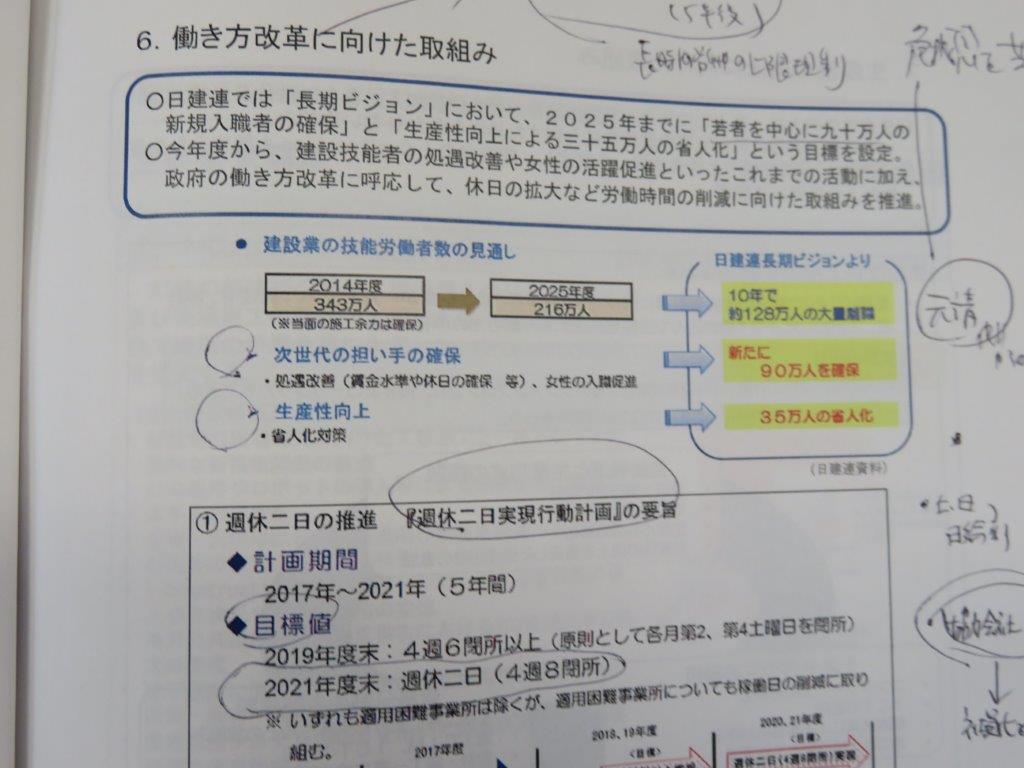 (5年後)
6. 働き方改革に向けた取組み
○日建連では「長期ビジョン」において、2025年までに「若者を中心に九十万人の
新規入職者の確保」と「生産性向上による三十五万人の省人化」という目標を設定。
○今年度から、建設技能者の処遇改善や女性の活躍促進といったこれまでの活動に加え、
政府の働き方改革に呼応して、休日の拡大など労働時間の削減に向けた取組みを推進。
● 建設業の技能労働者数の見通し
日建連長期ビジョンより
2014年度
343万人
(※当面の施工余力は確保)
2025年度
216万人
10年で
約128万人の大量離職
元請
➢ 次世代の担い手の確保
・処遇改善(賃金水準や休日の確保 等)、女性の入職促進
新たに
90万人を確保
➢ 生産性向上
・省人化対策
35万人の省人化
(日建連資料)
① 週休二日の推進 『週休二日実現行動計画』の要旨
・土、日
◆計画期間
2017年~2021年(5年間)
◆目標値
2019年度末:4週6閉所以上(原則として各月第2、第4土曜日を閉所)
2021年度末:週休二日(4週8閉所)
※ いずれも適用困難事業所は除くが、適用困難事業所についても稼働日の削減に取り
組む。
2017年度
2018,19年度
<目標>
2020,21年度
<目標>
週休二日(4週8閉所)実現
協力会社